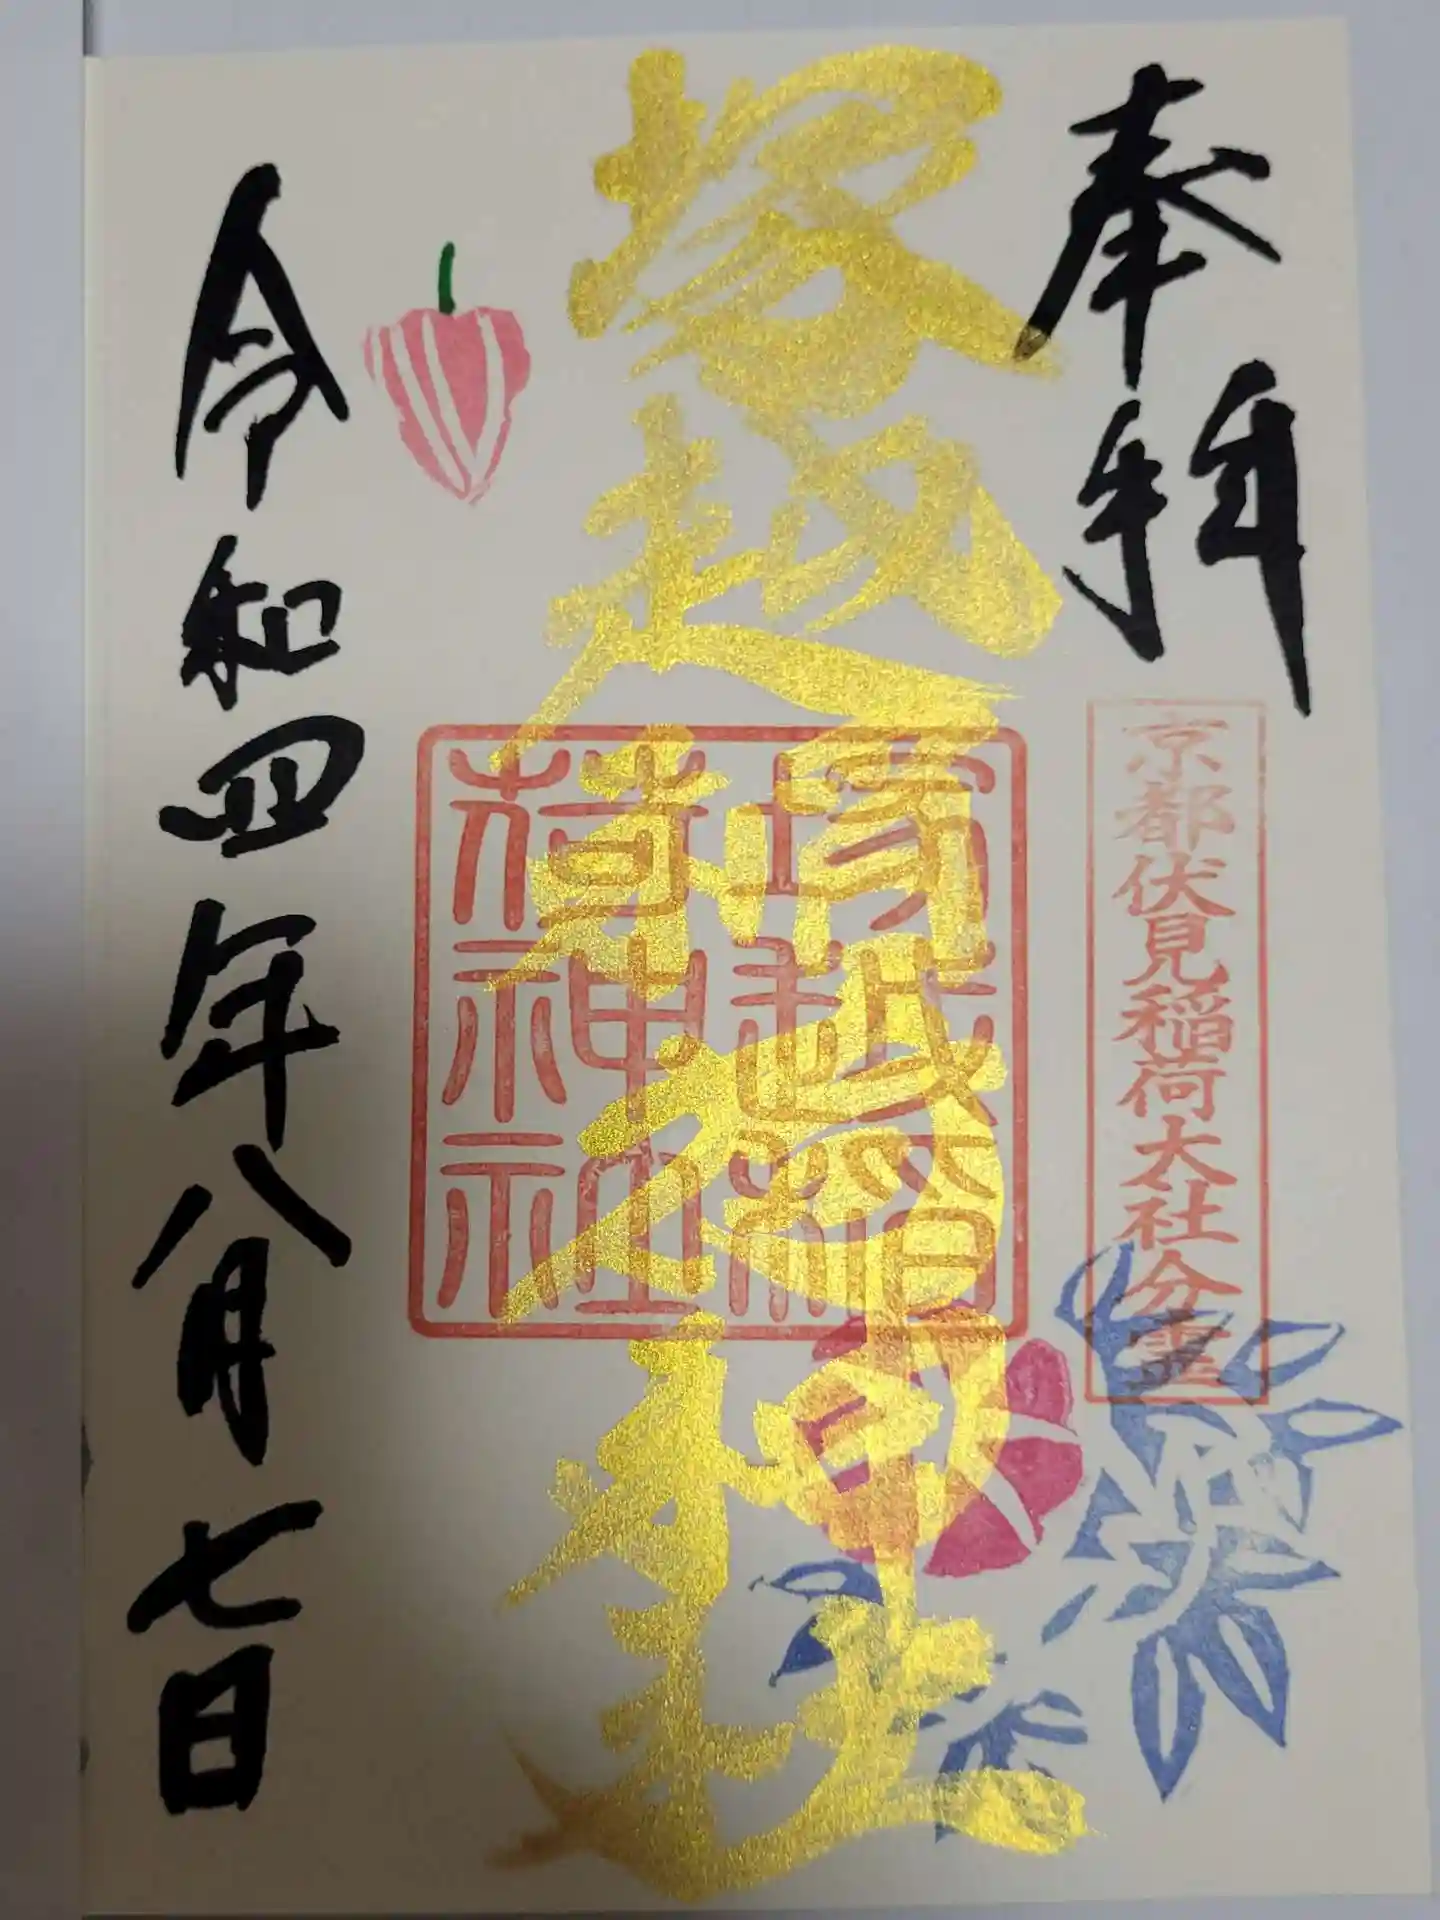 奉拝
京都伏見稲荷大社分霊
塚越稲荷神社
塚越稲荷神社
令和四年八月七日